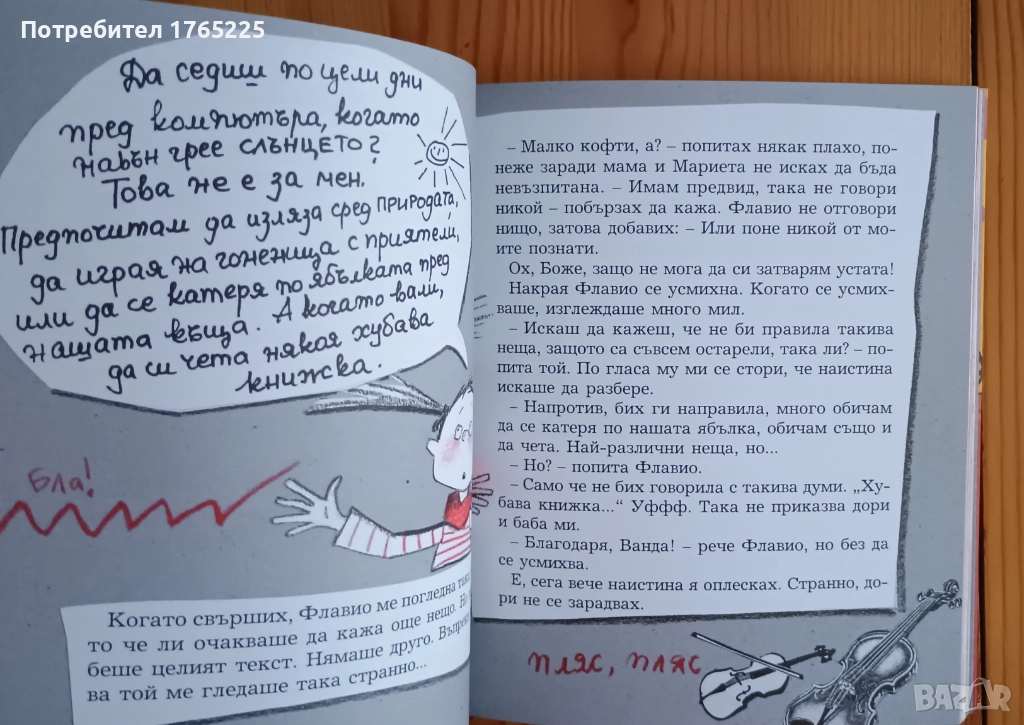 Потребител 1765225
Да седиш по цели дни
пред компютъра, когато
навън грее слънцето?
Това не е за мен.
Предпочитам да изляза сред природата,
да играя на гоненица с приятели,
или да се катеря по ябълката пред
нашата къща. А когато вали,
да си чета някоя хубава
книжка.
Бла!
Когато свърших, Флавио ме погледна
то че ли очакваше да кажа още нещо.
беше целият текст. Нямаше друго.
ва той ме гледаше така странно...
– Малко кофти, а? – попитах някак плахо, по-
неже заради мама и Мариета не исках да бъда
невъзпитана. – Имам предвид, така не говори
никой – побързах да кажа. Флавио не отговори
нищо, затова добавих: – Или поне никой от мо-
ите познати.
Ох, Боже, защо не мога да си затварям устата!
Накрая Флавио се усмихна. Когато се усмих-
ваше, изглеждаше много мил.
– Искаш да кажеш, че не би правила такива
неща, защото са съвсем остарели, така ли? – по-
пита той. По гласа му ми се стори, че наистина
искаше да разбере.
– Напротив, бих ги направила, много обичам
да се катеря по нашата ябълка, обичам също и
да чета. Най-различни неща, но...
– Но? – попита Флавио.
– Само че не бих говорила с такива думи. „Ху-
бава книжка...“ Уффф. Така не приказва дори
и баба ми.
– Благодаря, Ванда! – рече Флавио, но без да
се усмихва.
Е, сега вече наистина я оплесках. Странно, до-
ри не се зарадвах.
пляс, пляс
BAZAR